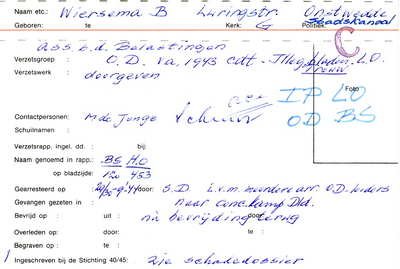 Naam etc.: Wiersema B Luringstr. Onstwedde
Stadskanaal
Geboren: te Kerk: G Politiek:
C
Ass. b.d. Belastingen
Verzetsgroep O.D. va, 1943 cdt - Illeg. bladen, L.O.
Trouw
Verzetswerk : doorgeven
Foto
IP LO
OD BS
Contactpersonen: M de Jonge
Schuilnaam :
Verzetsrapp. ingel. dd. : bij:
Naam genoemd in rapp.: BS H.O
op bladzijde: 120 453
Gearresteerd op door: S.D i.v.m. meerdere arr. OD-leiders
Gevangen gezeten in : naar conc.kamp Dld.
Bevrijd op : uit : door:
na bevrijding terug
Overleden op : door: te :
Begraven op : te :
Ingeschreven bij de Stichting 40/45: zie schadedossier